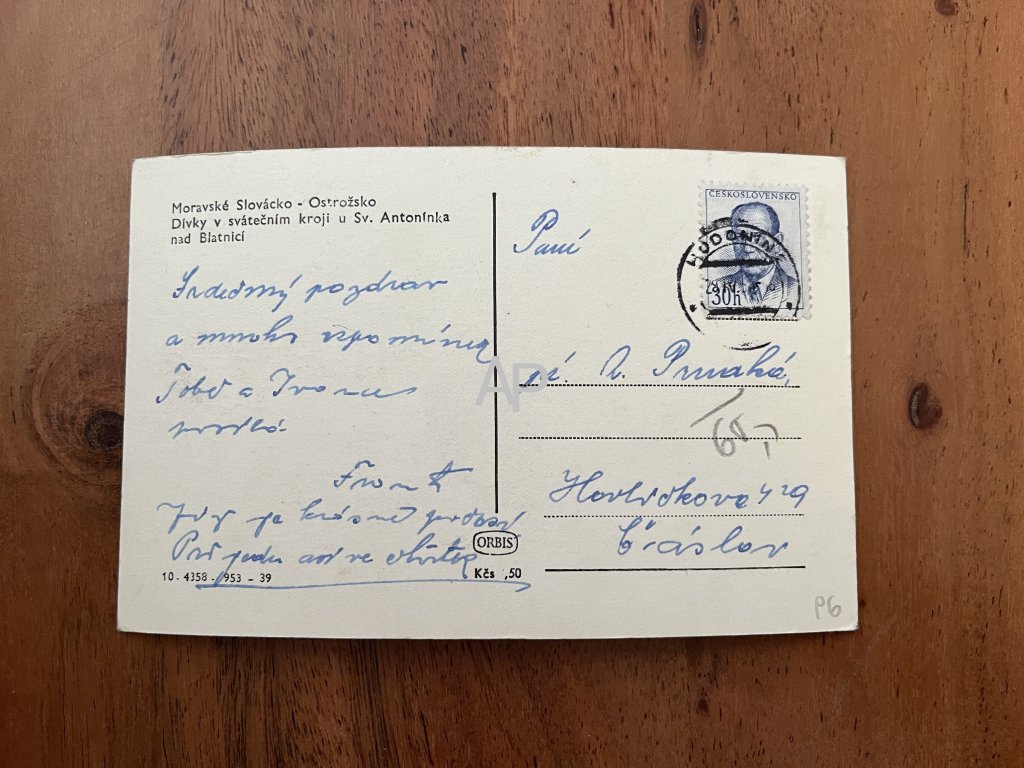 Moravské Slovácko - Ostrožsko
Dívky v svátečním kroji u Sv. Antonínka
nad Blatnicí
Srdečný pozdrav
a mnoho vzpomínek
Tobě a Ivance
posílá
Frant
je krásné počasí
Přijedu asi ve čtvrtek
10 - 4358 - 953 - 39
ORBIS
Kčs ,50
ČESKOSLOVENSKO
HODONÍN
30h
Paní
Havlíčkova 429
Čáslav
AP
P6